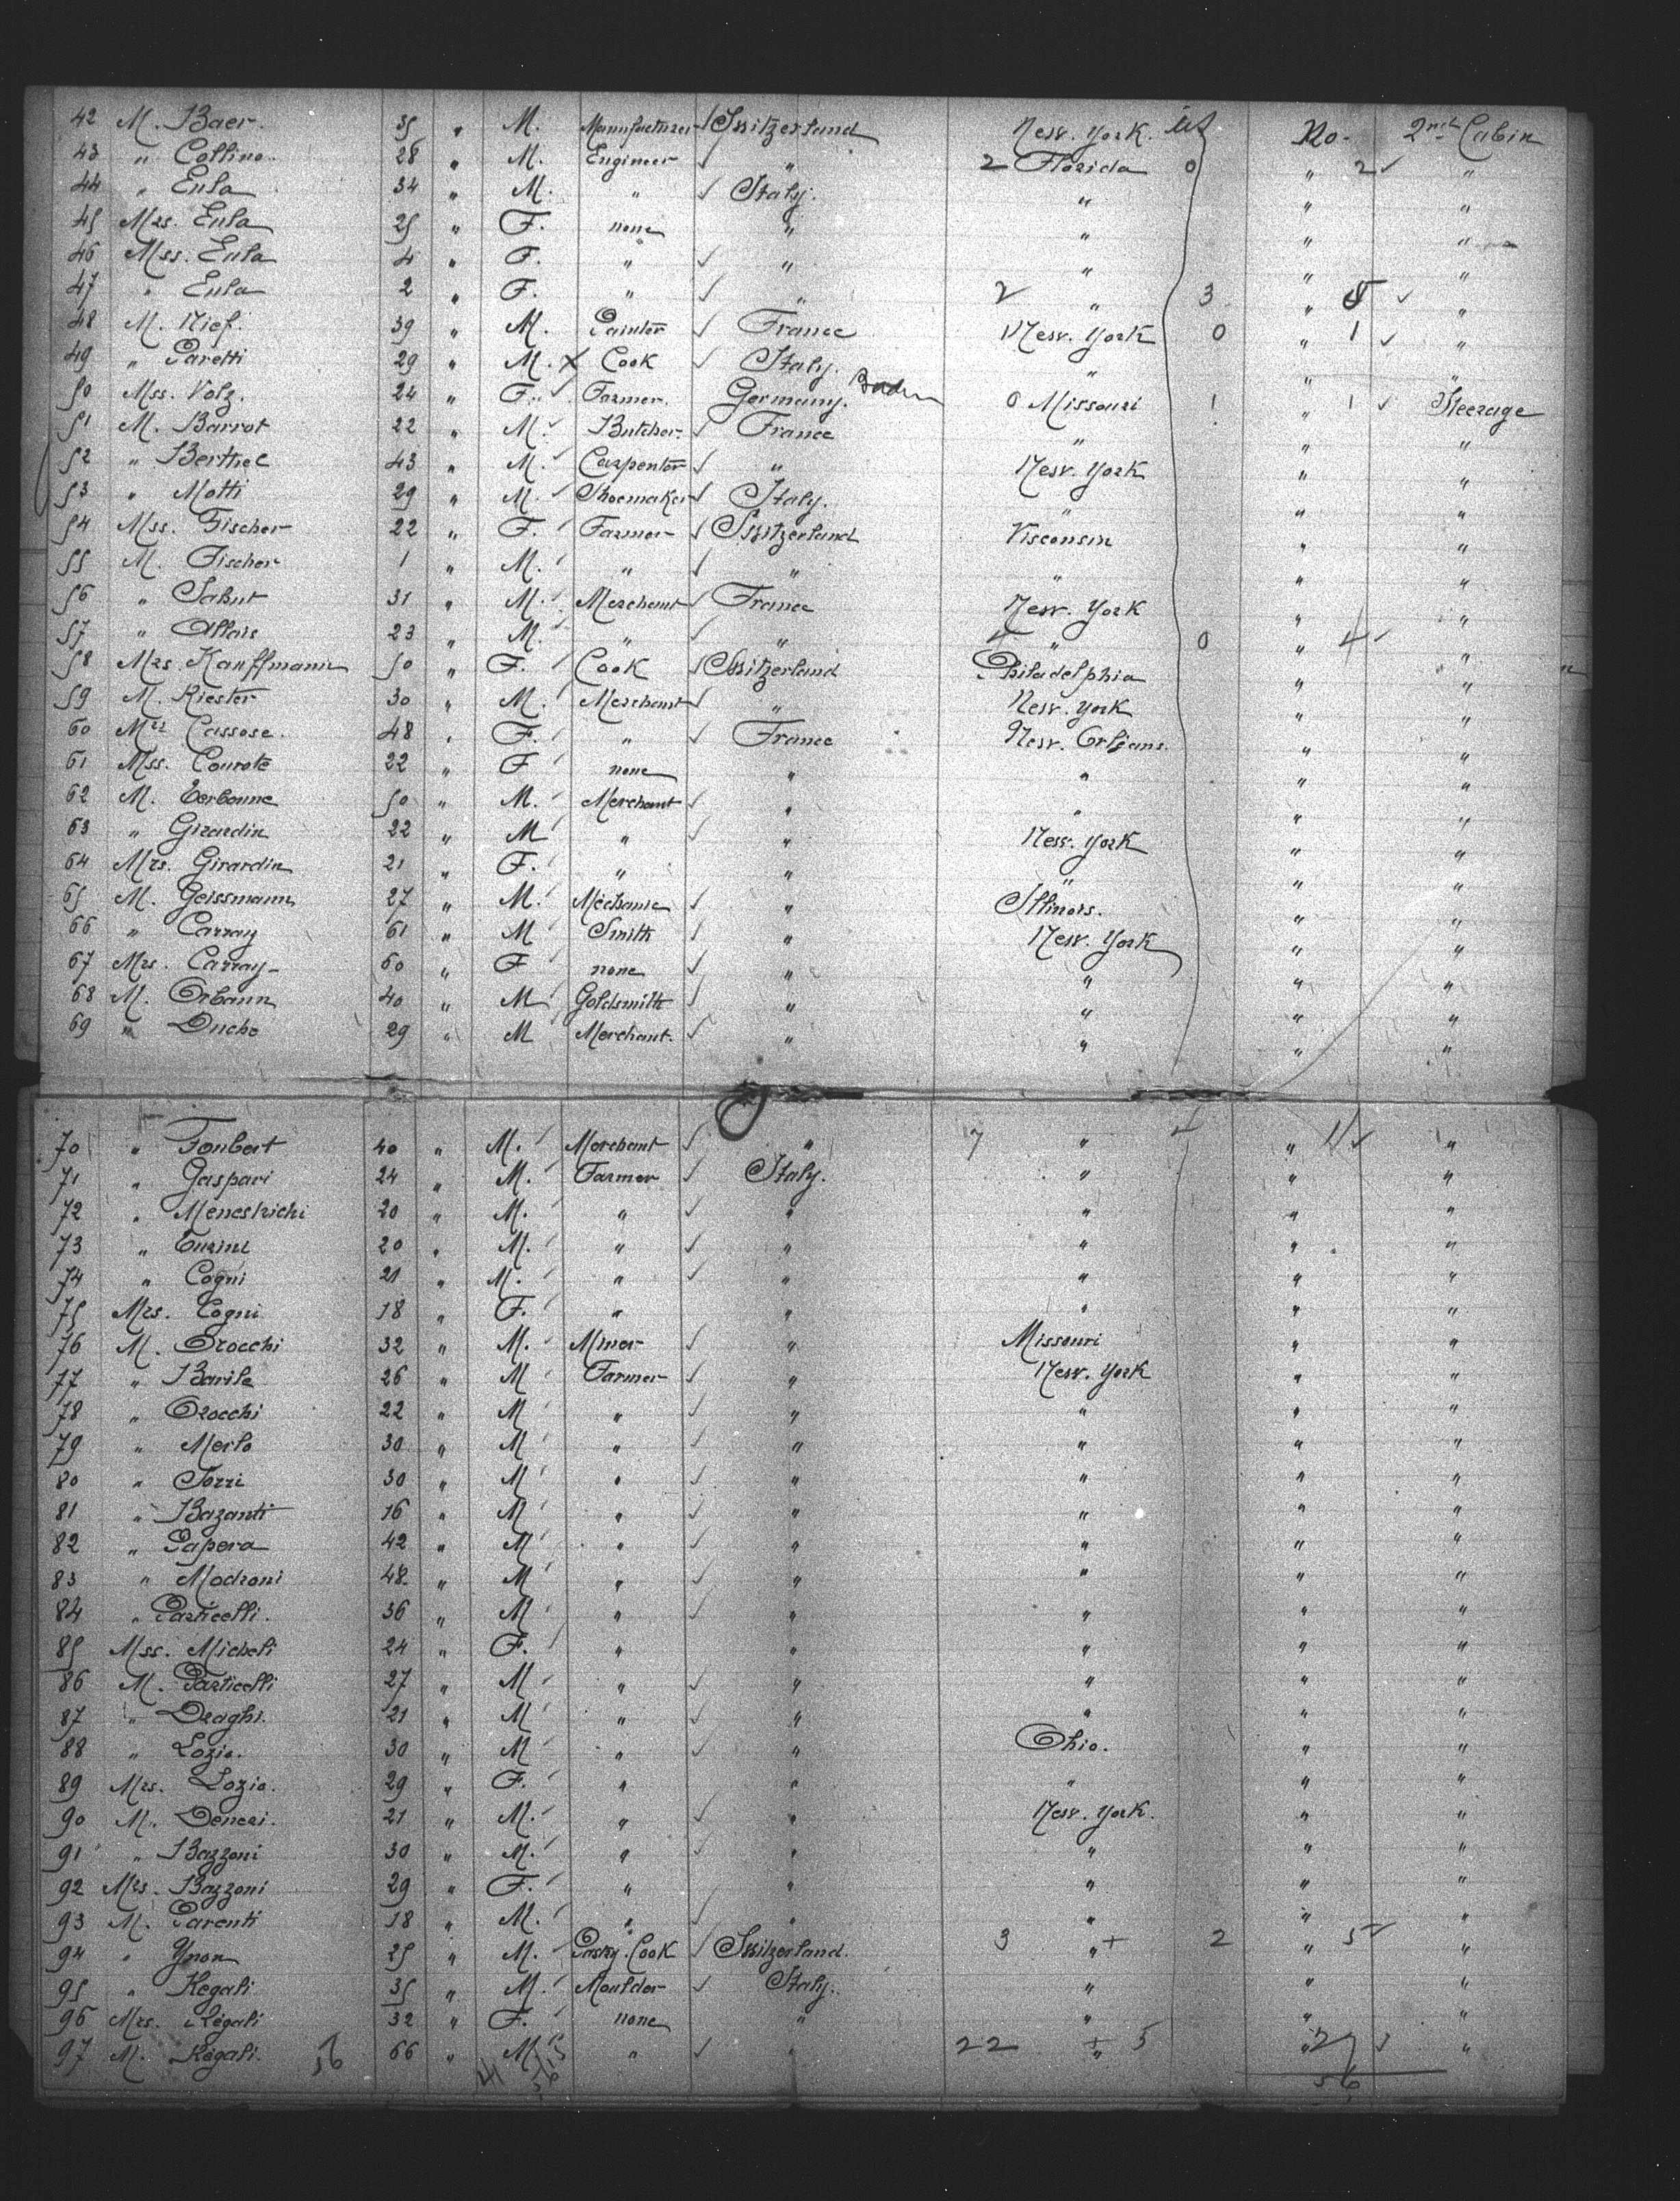 42 M. Baer. 35 " M. Manufacturer Switzerland New. York. No. 2nd Cabin
43 " Collino. 28 " M. Engineer " 2 Florida 0 " 2 "
44 " Eula 34 " M. " Italy. " " "
45 Mrs. Eula 25 " F. none " " " "
46 Mss. Eula 4 " F. " " " " "
47 " Eula 2 " F. " " 2 " 3 " 5 "
48 M. Nief. 39 " M. Painter France New. York 0 " 1 "
49 " Paretti 29 " M. x Cook Italy. " " "
50 Mss. Volz. 24 " F. Farmer. Germany. Baden 0 Missouri 1 " 1 Steerage
51 M. Barrot 22 " M. Butcher. France " " "
52 " Berthee 43 " M. Carpenter " New. York " "
53 " Motti 29 " M. Shoemaker Italy. " " "
54 Mss. Fischer 22 " F. Farmer Switzerland Visconsin " "
55 M. Fischer 1 " M. " " " " "
56 " Sahut 31 " M. Merchant France New. York " "
57 " Allais 23 " M. " " 4 " 0 " 4 "
58 Mrs. Kauffmann 50 " F. Cook Switzerland Philadelphia " "
59 M. Riester 30 " M. Merchant " New. York " "
60 Mrs Cassose. 48 " F. " France New. Orleans. " "
61 Mss. Courote 22 " F none " " " "
62 M. Eerbonne 50 " M. Merchant " " " "
63 " Girardin 22 " M " " New. York " "
64 Mrs. Girardin 21 " F. " " " " "
65 M. Geissmann 27 " M. Mechanic " Illinois. " "
66 " Carray 61 " M Smith " New. York " "
67 Mrs. Carray 60 " F none " " " "
68 M. Orbann 40 " M Goldsmith " " " "
69 " Duche 29 " M Merchant. " " " "
70 " Foubert 40 " M. Merchant " 7 " 4 " 11 "
71 " Gaspari 24 " M. Farmer Italy. " " "
72 " Meneshichi 20 " M. " " " " "
73 " Turini 20 " M. " " " " "
74 " Cogni 21 " M. " " " " "
75 Mrs. Cogni 18 " F. " " " " "
76 M. Orocchi 32 " M. Miner " Missouri " "
77 " Barile 26 " M Farmer " New. York " "
78 " Orocchi 22 " M " " " " "
79 " Merlo 30 " M " " " " "
80 " Torri 30 " M " " " " "
81 " Bazanti 16 " M " " " " "
82 " Papera 42 " M " " " " "
83 " Madroni 48 " M " " " " "
84 " Particelli. 36 " M " " " " "
85 Mss. Micheli 24 " F. " " " " "
86 M. Particelli 27 " M " " " " "
87 " Draghi. 21 " M " " " " "
88 " Lozio. 30 " M " " Ohio. " "
89 Mrs. Lozio. 29 " F. " " " " "
90 M. Deneri. 21 " M. " " New. York. " "
91 " Bazzoni 30 " M. " " " " "
92 Mrs. Bazzoni 29 " F. " " " " "
93 M. Parenti 18 " M. " " " " "
94 " Ynon 25 " M. Pastry. Cook Switzerland. 3 " + 2 " 5 "
95 " Regali 35 " M. Moulder Italy. " " "
96 Mrs. Regali 32 " F. none " " " "
97 M. Regali. 56 66 " M " " 22 + " 5 " 27 "
41 15 56 56